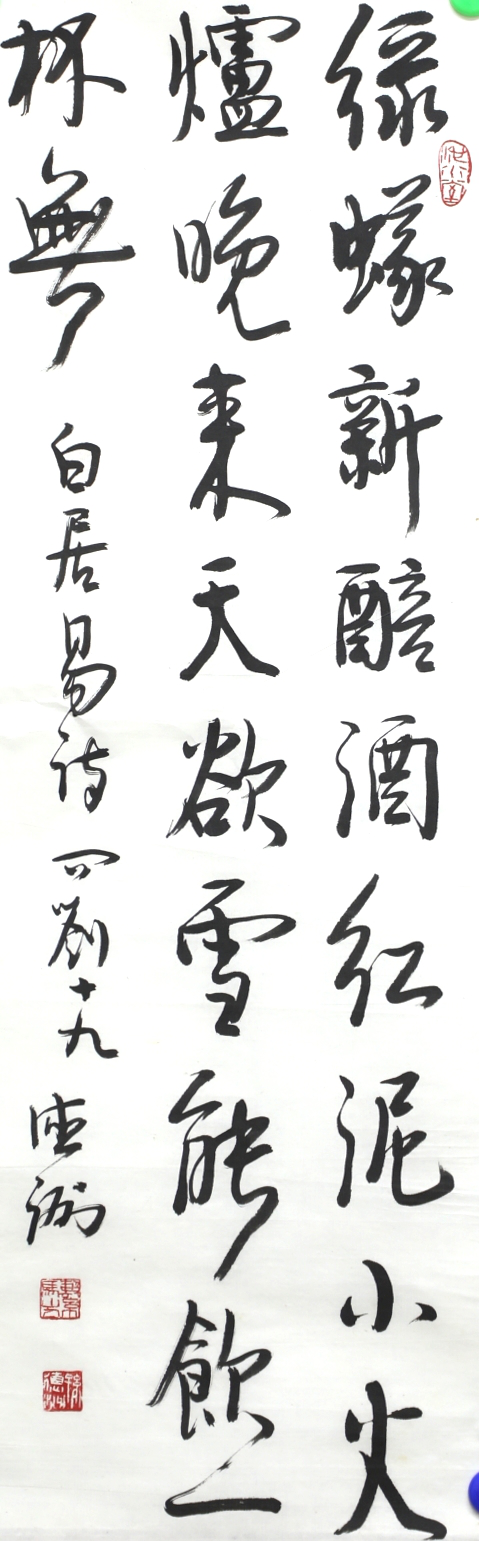 綠蟻新醅酒紅泥小火
爐晚来天欲雪能飲一
杯無
白居易詩 問劉十九